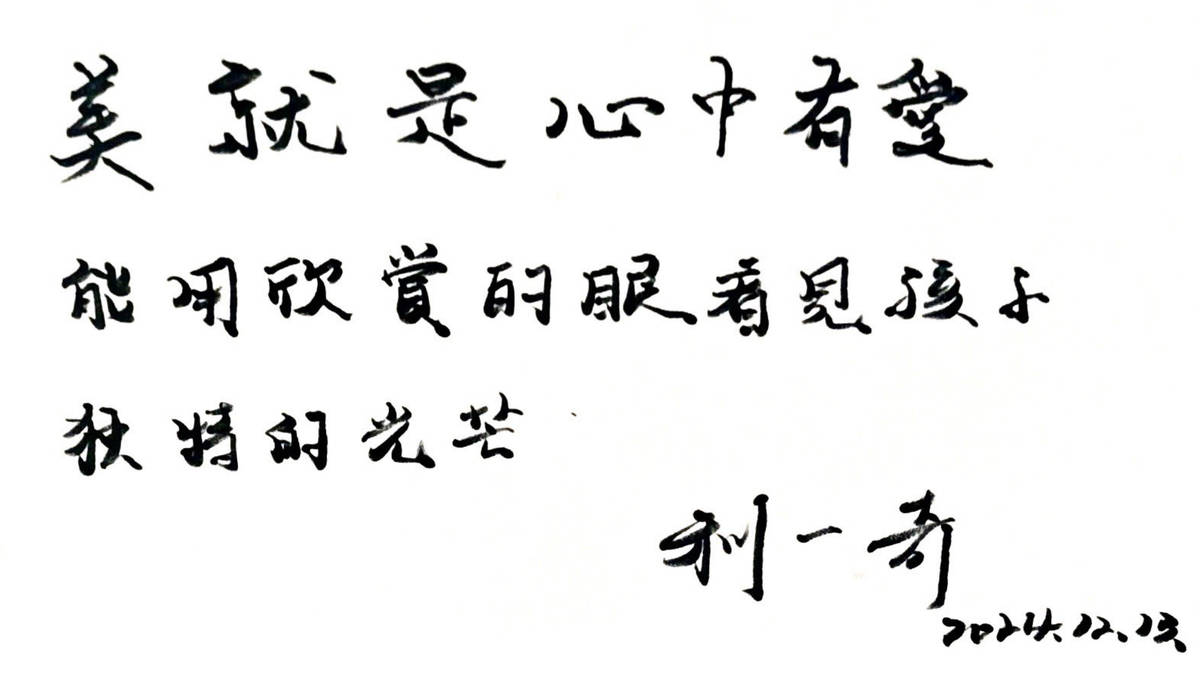 美就是心中有愛
能用欣賞的眼看見孩子
独特的光芒
利一奇
2024.12.13